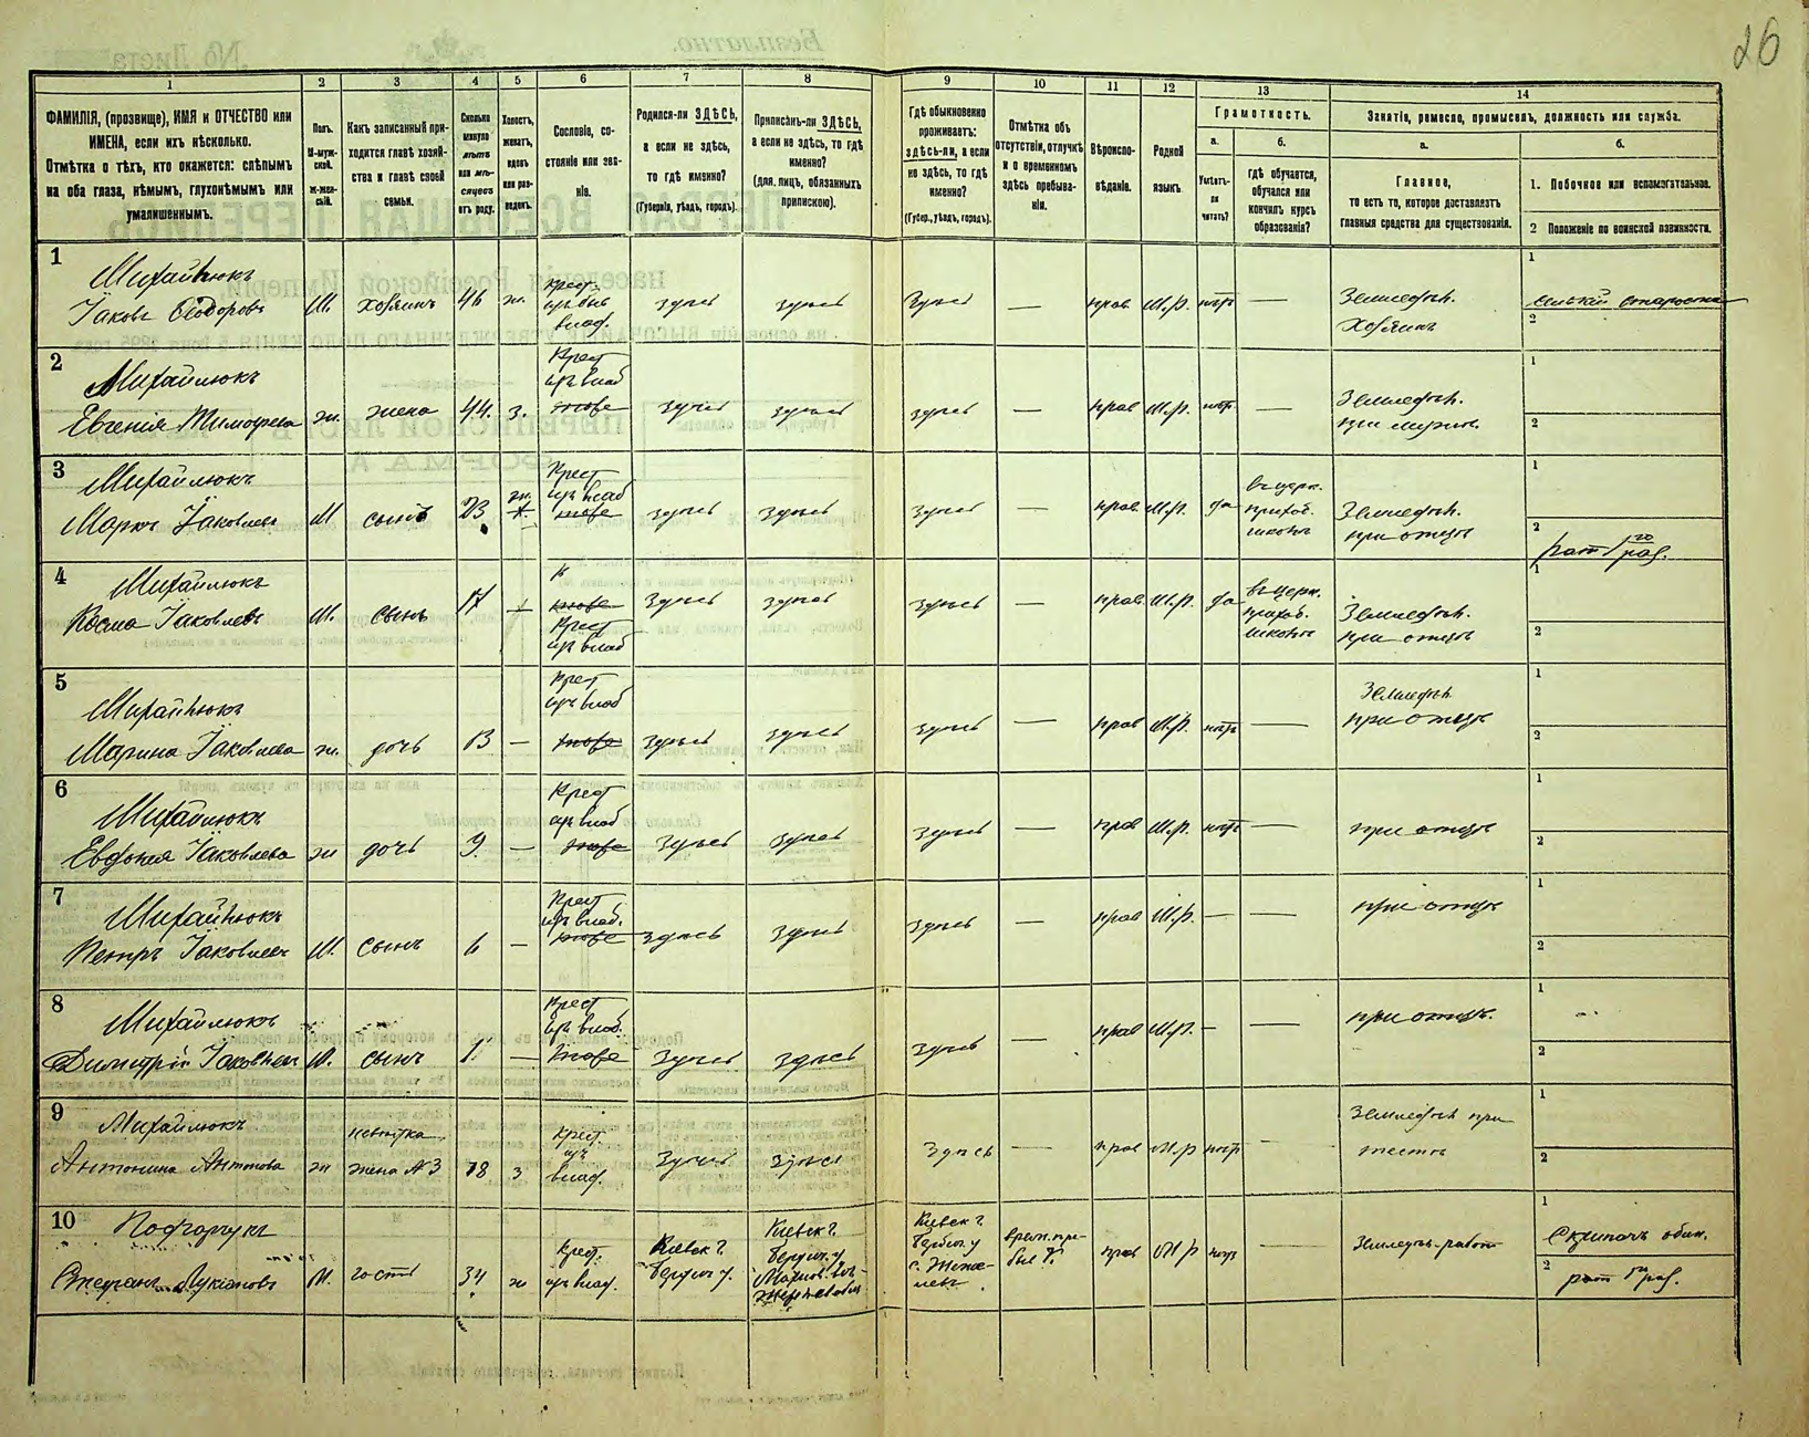 26
1
2
3
4
5
6
7
8
9
10
11
12
13
14
ФАМИЛІЯ, (прозвище), ИМЯ и ОТЧЕСТВО или
ИМЕНА, если ихъ нѣсколько.
Отмѣтка о тѣхъ, кто окажется: слѣпымъ
на оба глаза, нѣмымъ, глухонѣмымъ или
умалишеннымъ.
Полъ.
М-муж-
ской.
Ж-жен-
скій.
Какъ записанный при-
ходится главѣ хозяй-
ства и главѣ своей
семьи.
Сколько
минуло
лѣтъ
или мѣ-
сяцевъ
отъ роду.
Холостъ,
женатъ,
вдовъ
или раз-
веденъ.
Сословіе, со-
стояніе или зва-
ніе.
Родился-ли ЗДѢСЬ,
а если не здѣсь,
то гдѣ именно?
(Губернія, уѣздъ, городъ).
Приписанъ-ли ЗДѢСЬ,
а если не здѣсь, то гдѣ
именно?
(для лицъ, обязанныхъ
припискою).
Гдѣ обыкновенно
проживаетъ:
здѣсь-ли, а если
не здѣсь, то гдѣ
именно?
(Губер., уѣздъ, городъ).
Отмѣтка объ
отсутствіи, отлучкѣ
и о временномъ
здѣсь пребыва-
ніи.
Вѣроиспо-
вѣданіе.
Родной
языкъ.
Грамотность.
а.
Умѣетъ-
ли
читать?
б.
гдѣ обучается,
обучался или
кончилъ курсъ
образованія?
Занятіе, ремесло, промыселъ, должность или служба.
а.
Главное,
то есть то, которое доставляетъ
главныя средства для существованія.
б.
1. Побочное или вспомогательное.
2 Положеніе по воинской повинности.
1
Михайлюкъ
Іаковъ Ѳеодоровъ
М.
хозяинъ
46
ж.
Крест.
изъ быв
влад.
здѣсь
здѣсь
Здѣсь
—
прав.
М.р.
нѣтъ
—
Земледѣл.
Хозяинъ
1
сельскій староста
2
2
Михайлюкъ
Евгенія Тимофеева
ж.
жена
44.
з.
Крест
изъ влад
тоже
здѣсь
здѣсь
здѣсь
—
прав
М.р.
нѣт.
—
Земледѣл.
при мужѣ.
1
2
3
Михайлюкъ
Маркъ Іаковлевъ
М
сынъ
23
ж.
Крест
изъ влад
тоже
здѣсь
здѣсь
здѣсь
—
прав.
М.р.
да
въ церк.
приход.
школѣ
Земледѣл.
при отцѣ
1
2
рат 1го раз.
4
Михайлюкъ
Косма Іаковлевъ
М.
сынъ
17
К
тоже
Крест
изъ влад
здѣсь
здѣсь
здѣсь
—
прав.
М.р.
да
въ церк.
приход.
школѣ
Земледѣл.
при отцѣ
1
2
5
Михайлюкъ
Марина Іаковлева
ж.
дочь
13
—
Крест
изъ влад
тоже
здѣсь
здѣсь
здѣсь
—
прав
М.р.
нѣтъ
—
Земледѣл
при отцѣ
1
2
6
Михайлюкъ
Евдокія Іаковлева
ж
дочь
9
—
Крест
изъ влад
тоже
здѣсь
здѣсь
здѣсь
—
прав
М.р.
нѣтъ
—
при отцѣ
1
2
7
Михайлюкъ
Петръ Іаковлевъ
М.
сынъ
6
—
Крест
изъ влад.
тоже
здѣсь
здѣсь
здѣсь
—
прав
М.р.
—
—
при отцѣ
1
2
8
Михайлюкъ
Димитрій Іаковлевъ
М.
сынъ
1.
—
Крест
изъ влад.
тоже
здѣсь
здѣсь
здѣсь
—
прав
М.р.
—
—
при отцѣ.
1
2
9
Михайлюкъ
Антонина Антонова
ж
невѣстка
жена №3
18
з
Крест.
изъ
влад.
здѣсь
здѣсь
здѣсь
—
прав
М.р
нѣтъ
—
Земледѣл при
тестѣ
1
2
10
Степанъ Лукіановъ
М.
гость
34
ж
Крест.
изъ влад.
Кіевск г.
Бердич у.
Кіевск г.
Бердич. у
Кіевск г.
Бердич. у
врем. пре-
был
прав
М р
нѣтъ
—
Земледѣл. работ
1
2
рат раз.